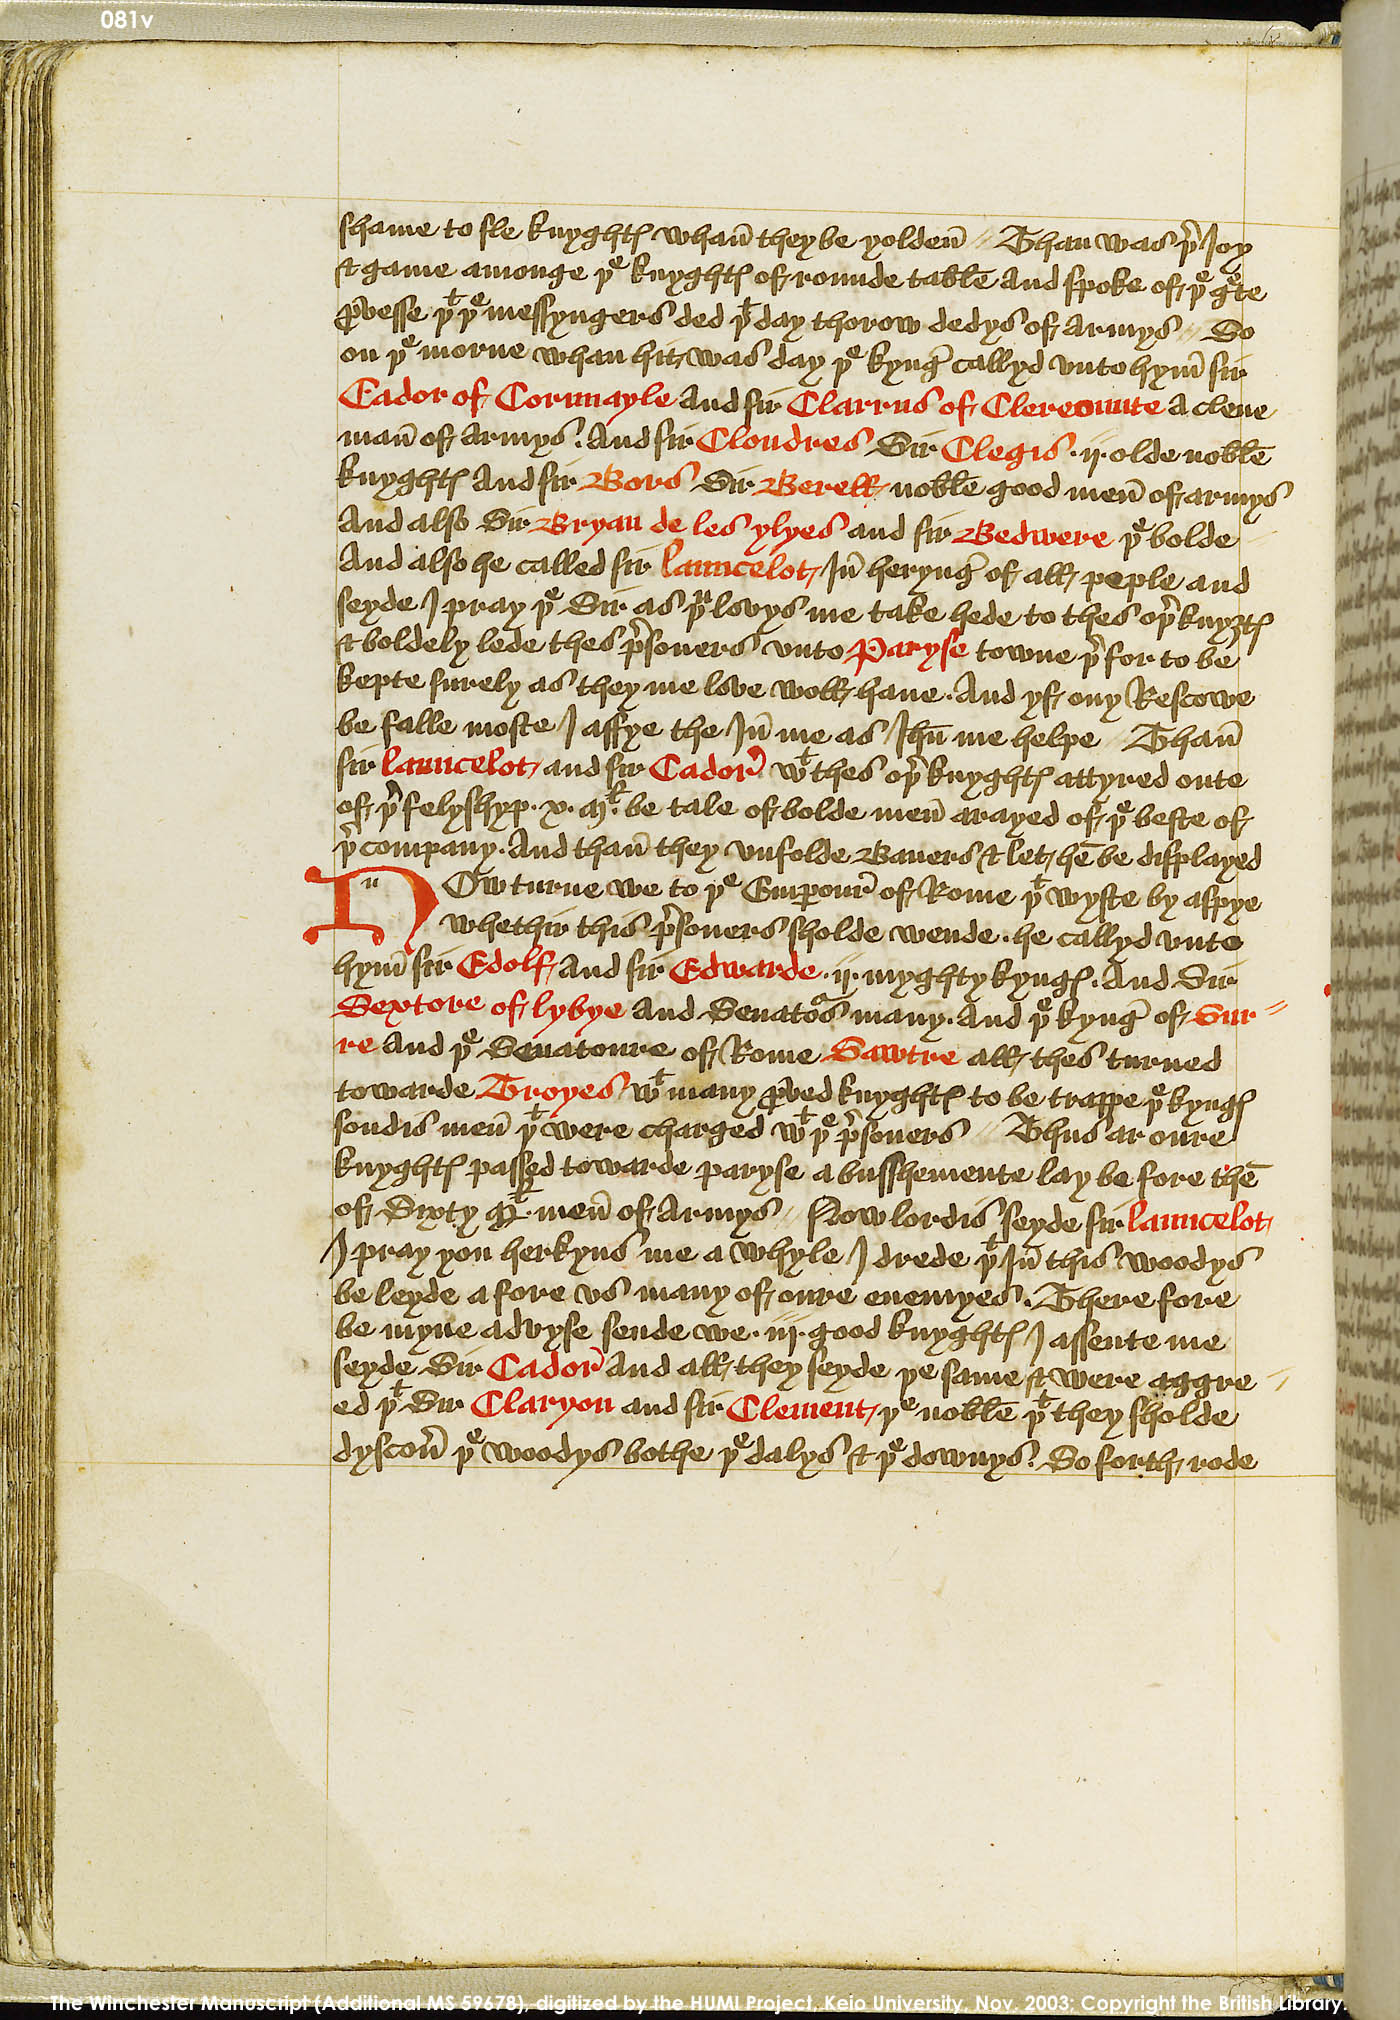 081v
shame to sle knyghtꝭ whan̄ they be yolden̄ // Than was þ̉ Joy
& game amonge þͤ knyghtꝭ of rounde table And spoke of þͤ gͤte
ꝓvesse þͭ þͤ messyngers ded þͭ day thorow dedys of armys // So
on þͤ morne whan hit was day þͤ kyng̉ callyd vnto hym̄ sir
Cador of Cornwayle And sir Clarrus of Clerecounte A clene
man̄ of Armys. And sir Cloudres Sir Clegis ·ij· olde noble
knyghtꝭ And sir Bors Sir Berell noble good men̄ of armys
And also Sir Bryan de les ylyes and sir Bedwere þͤ bolde
And also he called sir launcelot Jn̄ heryng̉ of all peple and
seyde J pray þͤ Sir as þͧ lovys me take hede to thes oþ̉ knyȝtꝭ
& boldely lede thes p̉soners vnto Paryse towne þ̉ for to be
kepte surely as they me love woll haue. And yf ony Rescowe
be falle moste J affye the Jn̄ me as Jhū me helpe // Than̄
sir launcelot and sir Cador̉ wͭ thes oþ̉ knyghtꝭ attyred oute
of þ̉ felyshyp ·x· Mͭ be tale of bolde men̄ arayed of þͤ beste of
þ̉ company. And than̄ they vnfolde Baners & let hē be displayed
NOw turne we to þͤ Emꝑour̉ of Rome þͭ wyste by aspye
whethir this p̉soners sholde wende. he callyd vnto
hym̄ sir Edolf And sir Edwarde ·ij· myghty kyngꝭ. And Sir
Sextore of lybye And Senatoͬs many. And þͤ kyng̉ of Sur=
re And þͤ Senatoure of Rome Sawtre all thes turned
towarde Troyes wͭ many ꝓved knyghtꝭ to be trappe þͤ kyngꝭ
sondis men̄ þͭ were charged wͭ þͤ p̉soners // Thus ar oure
knyghtꝭ passed towarde paryse a busshemente lay be fore thē
of Sixty Mͭ men̄ of Armys // Now lordis seyde sir launcelot
J pray you herkyns me a whyle J drede þͭ Jn̄ this woodys
be leyde a fore vs many of oure enemyes. There fore
be myne advyse sende we ·iij· good knyghtꝭ J assente me
seyde Sir Cador̉ And all they seyde þe same & were aggre=
ed þͭ Sir Claryon and sir Clement þͤ noble þͭ they sholde
dyscoủ þͤ woodys bothe þͤ dalys & þͤ downys. So forth rode
The Winchester Manuscript (Additional MS 59678), digitized by the HUMI Project, Keio University, Nov. 2003; Copyright the British Library.